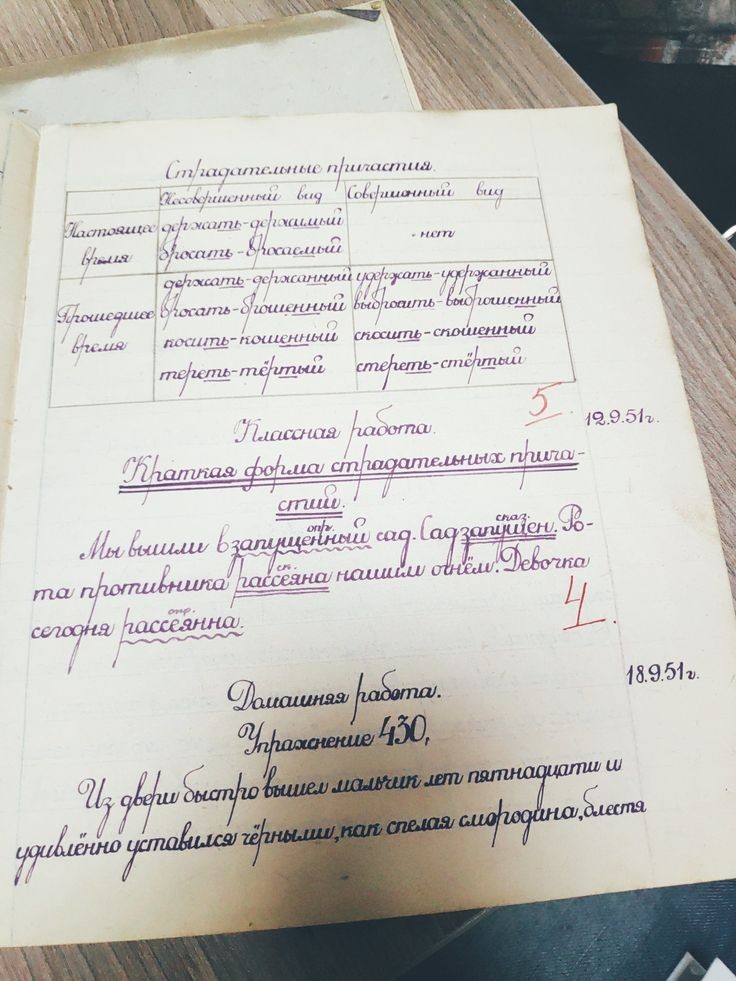 Страдательные причастия.
Несовершенный вид Совершенный вид
Настоящее держать-держимый
время бросать-бросаемый нет
держать-держанный удержать-удержанный
Прошедшее бросать-брошенный выбросить-выброшенный
время косить-кошенный скосить-скошенный
тереть-тёртый стереть-стёртый
5
Классная работа. 12.9.51г.
Краткая форма страдательных прича-
стий.
опр. сказ.
Мы вышли в запущенный сад. Сад запущен. Ро-
ск.
та противника рассеяна нашим огнём. Девочка
опр.
сегодня рассеянна.
4.
Домашняя работа. 18.9.51г.
Упражнение 430,
Из двери быстро вышел мальчик лет пятнадцати и
удивлённо уставился чёрными, как спелая смородина, блестя